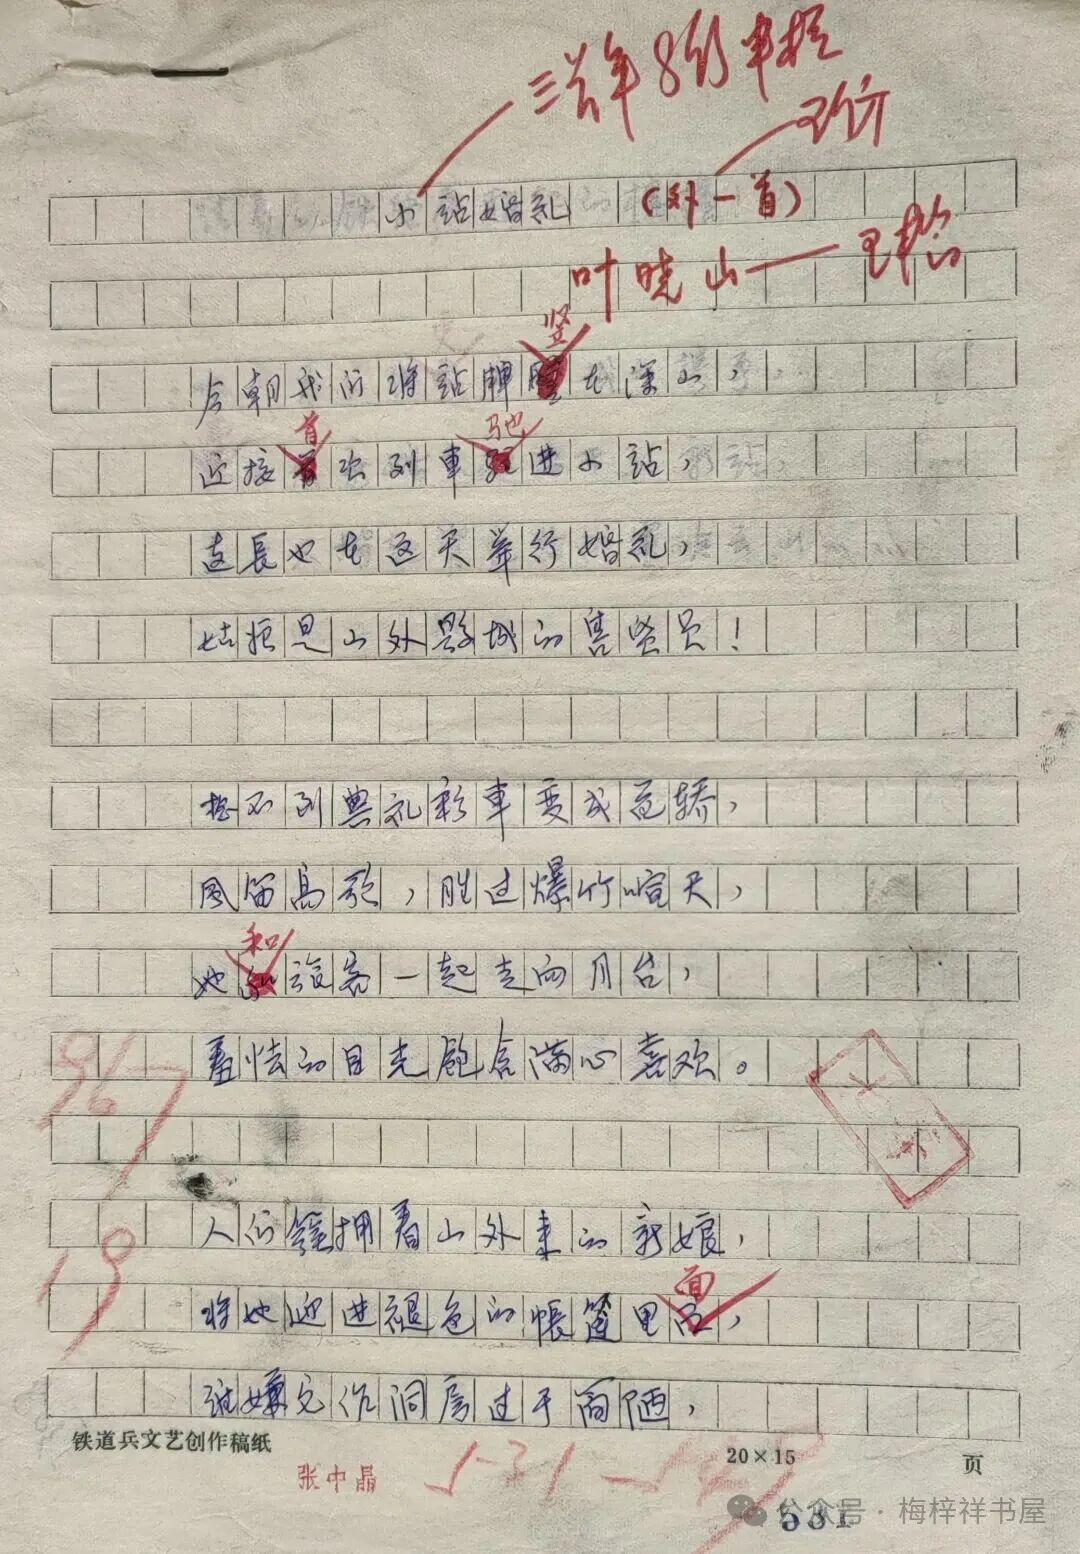 小站婚礼 (外一首)
叶晓山
竖
今朝我们将站牌在深山，
首 驰
迎接次列車进小站，
连長也在这天举行婚礼，
姑娘是山外县城的售货员！
想不到典礼彩車变成花轿，
風笛高歌，胜过爆竹喧天，
和
她旅客一起走向月台，
羞怯的目光饱含满心喜欢。
人们簇拥着山外来的新娘，
面
将她迎进褪色的帳篷里，
谁嫌它作洞房过于简陋，
铁道兵文艺创作稿纸
20×15
页
张中晶
公众号·梅梓祥书屋